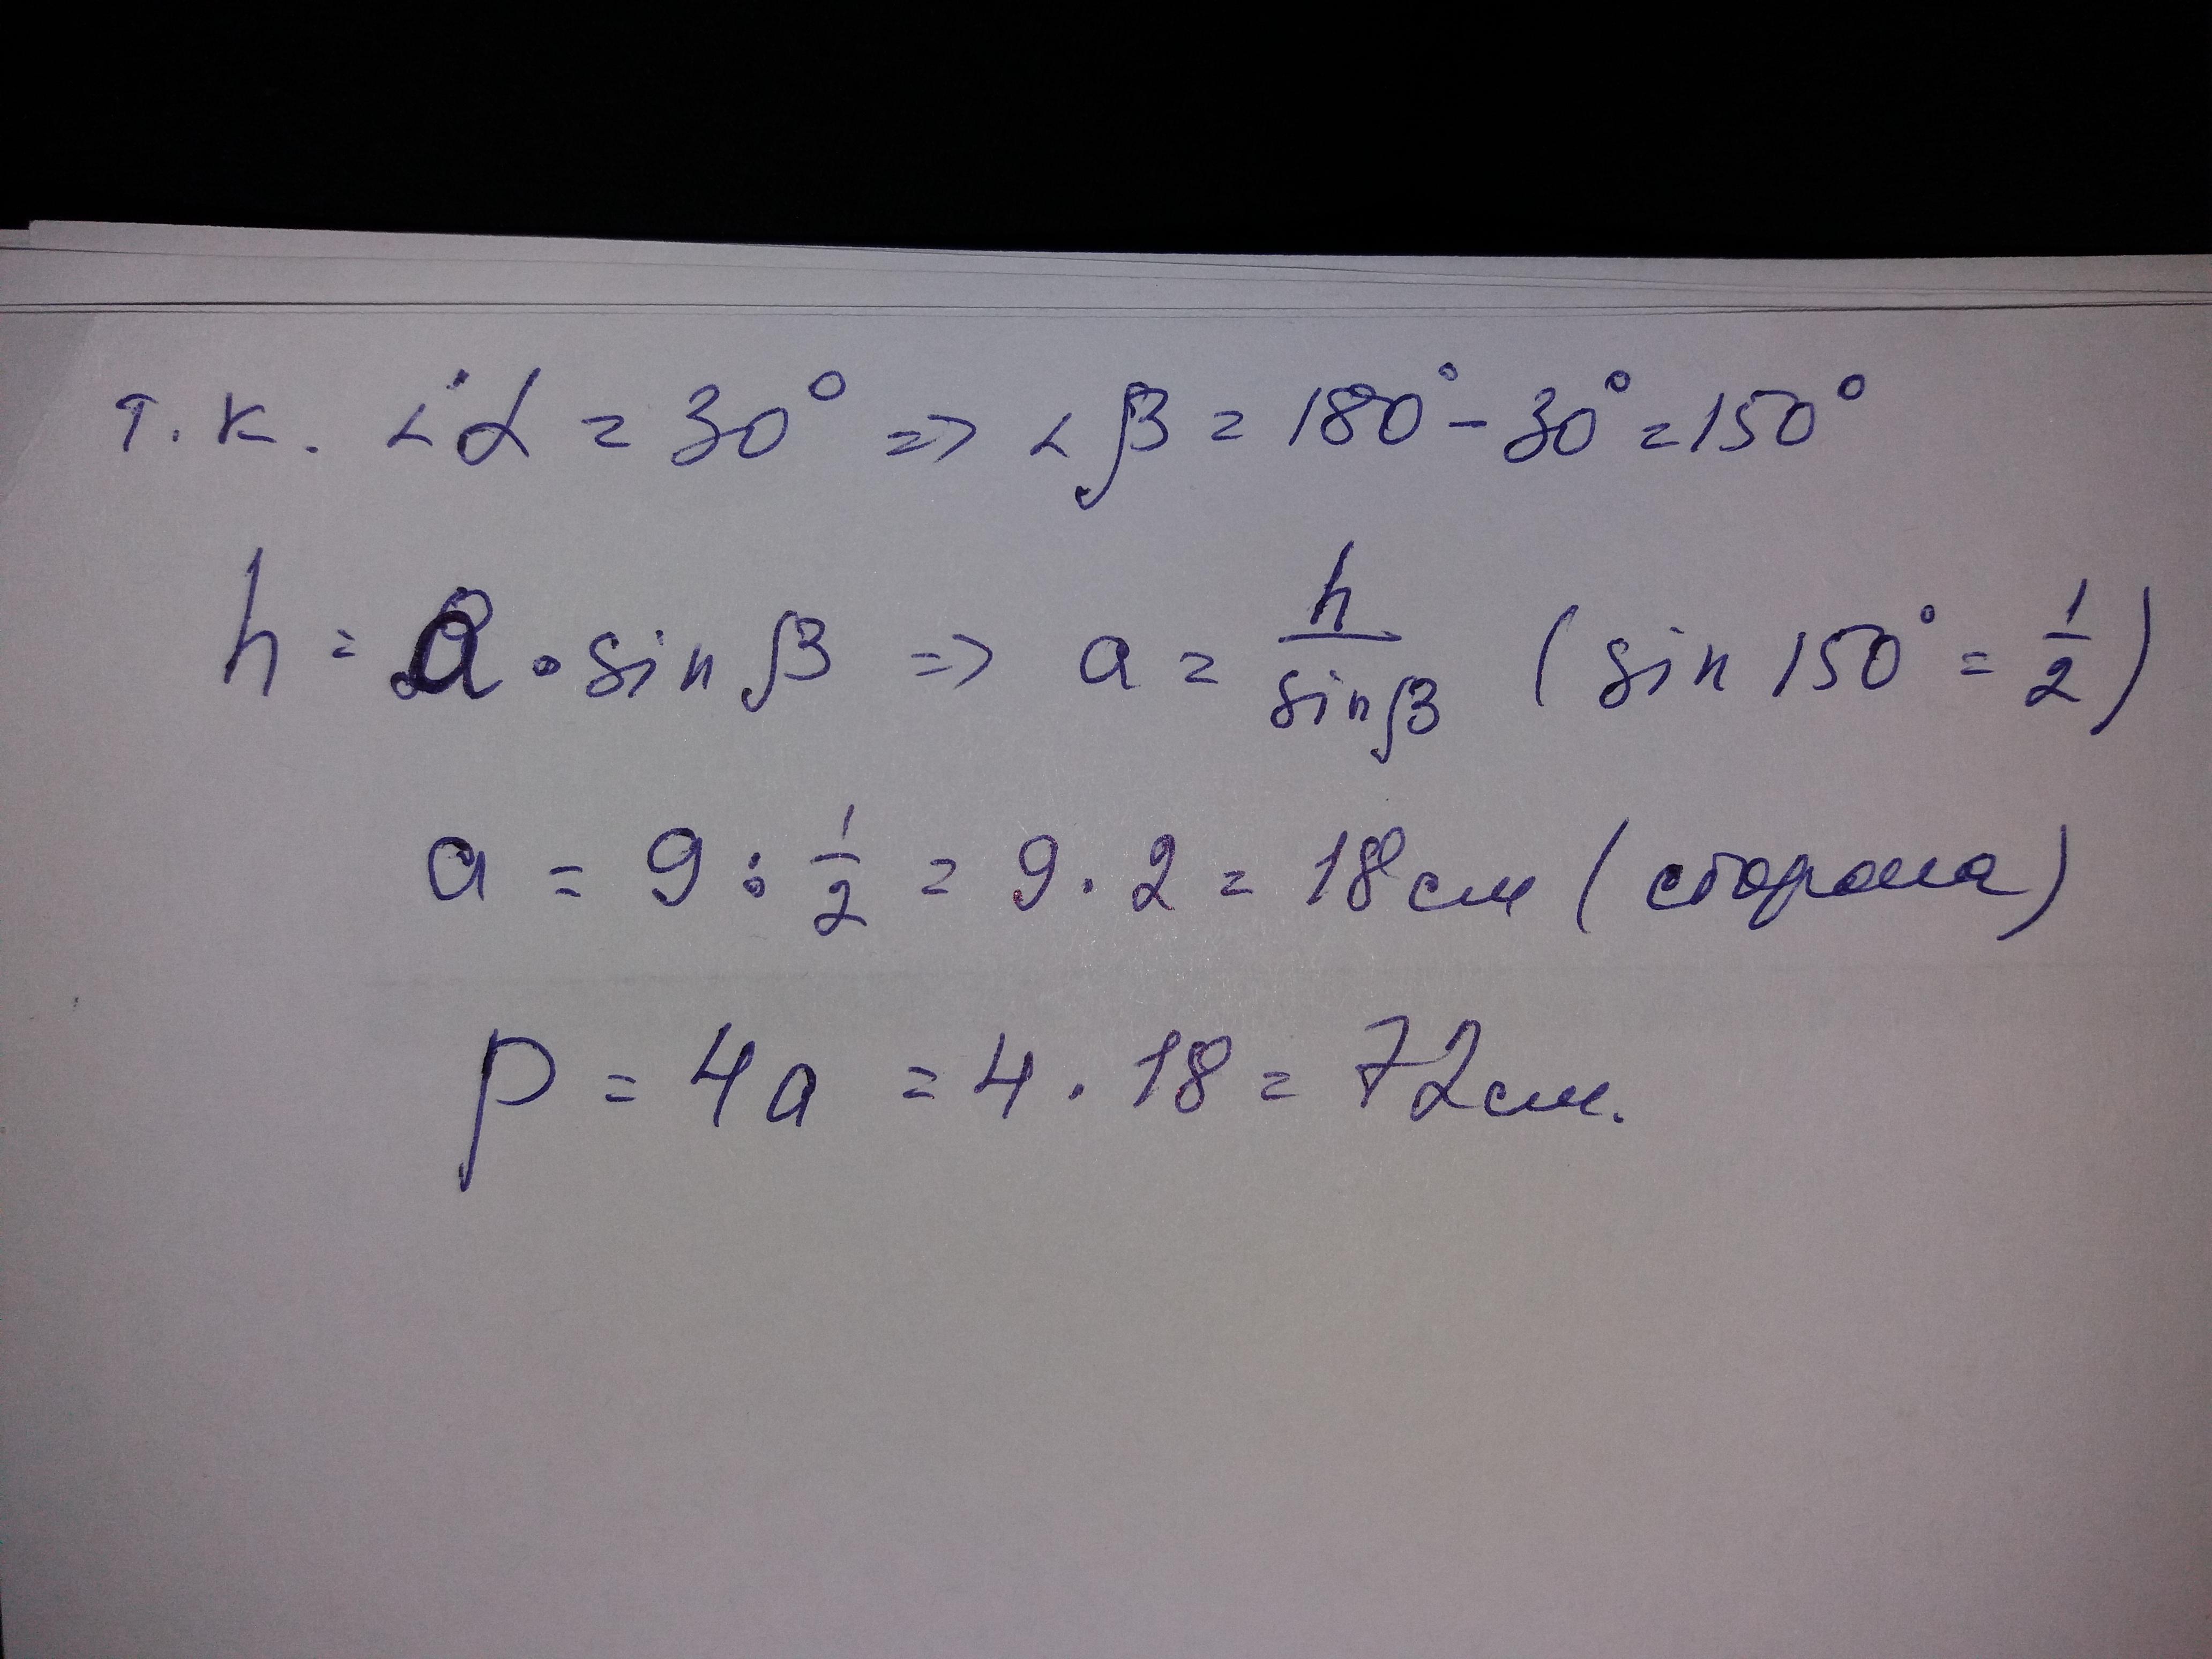 т.к. ∠α = 30° => ∠β = 180° - 30° = 150°
h = a · sin β => a = h/sin β (sin 150° = 1/2)
a = 9 : 1/2 = 9 · 2 = 18 см (сторона)
P = 4a = 4 · 18 = 72 см.